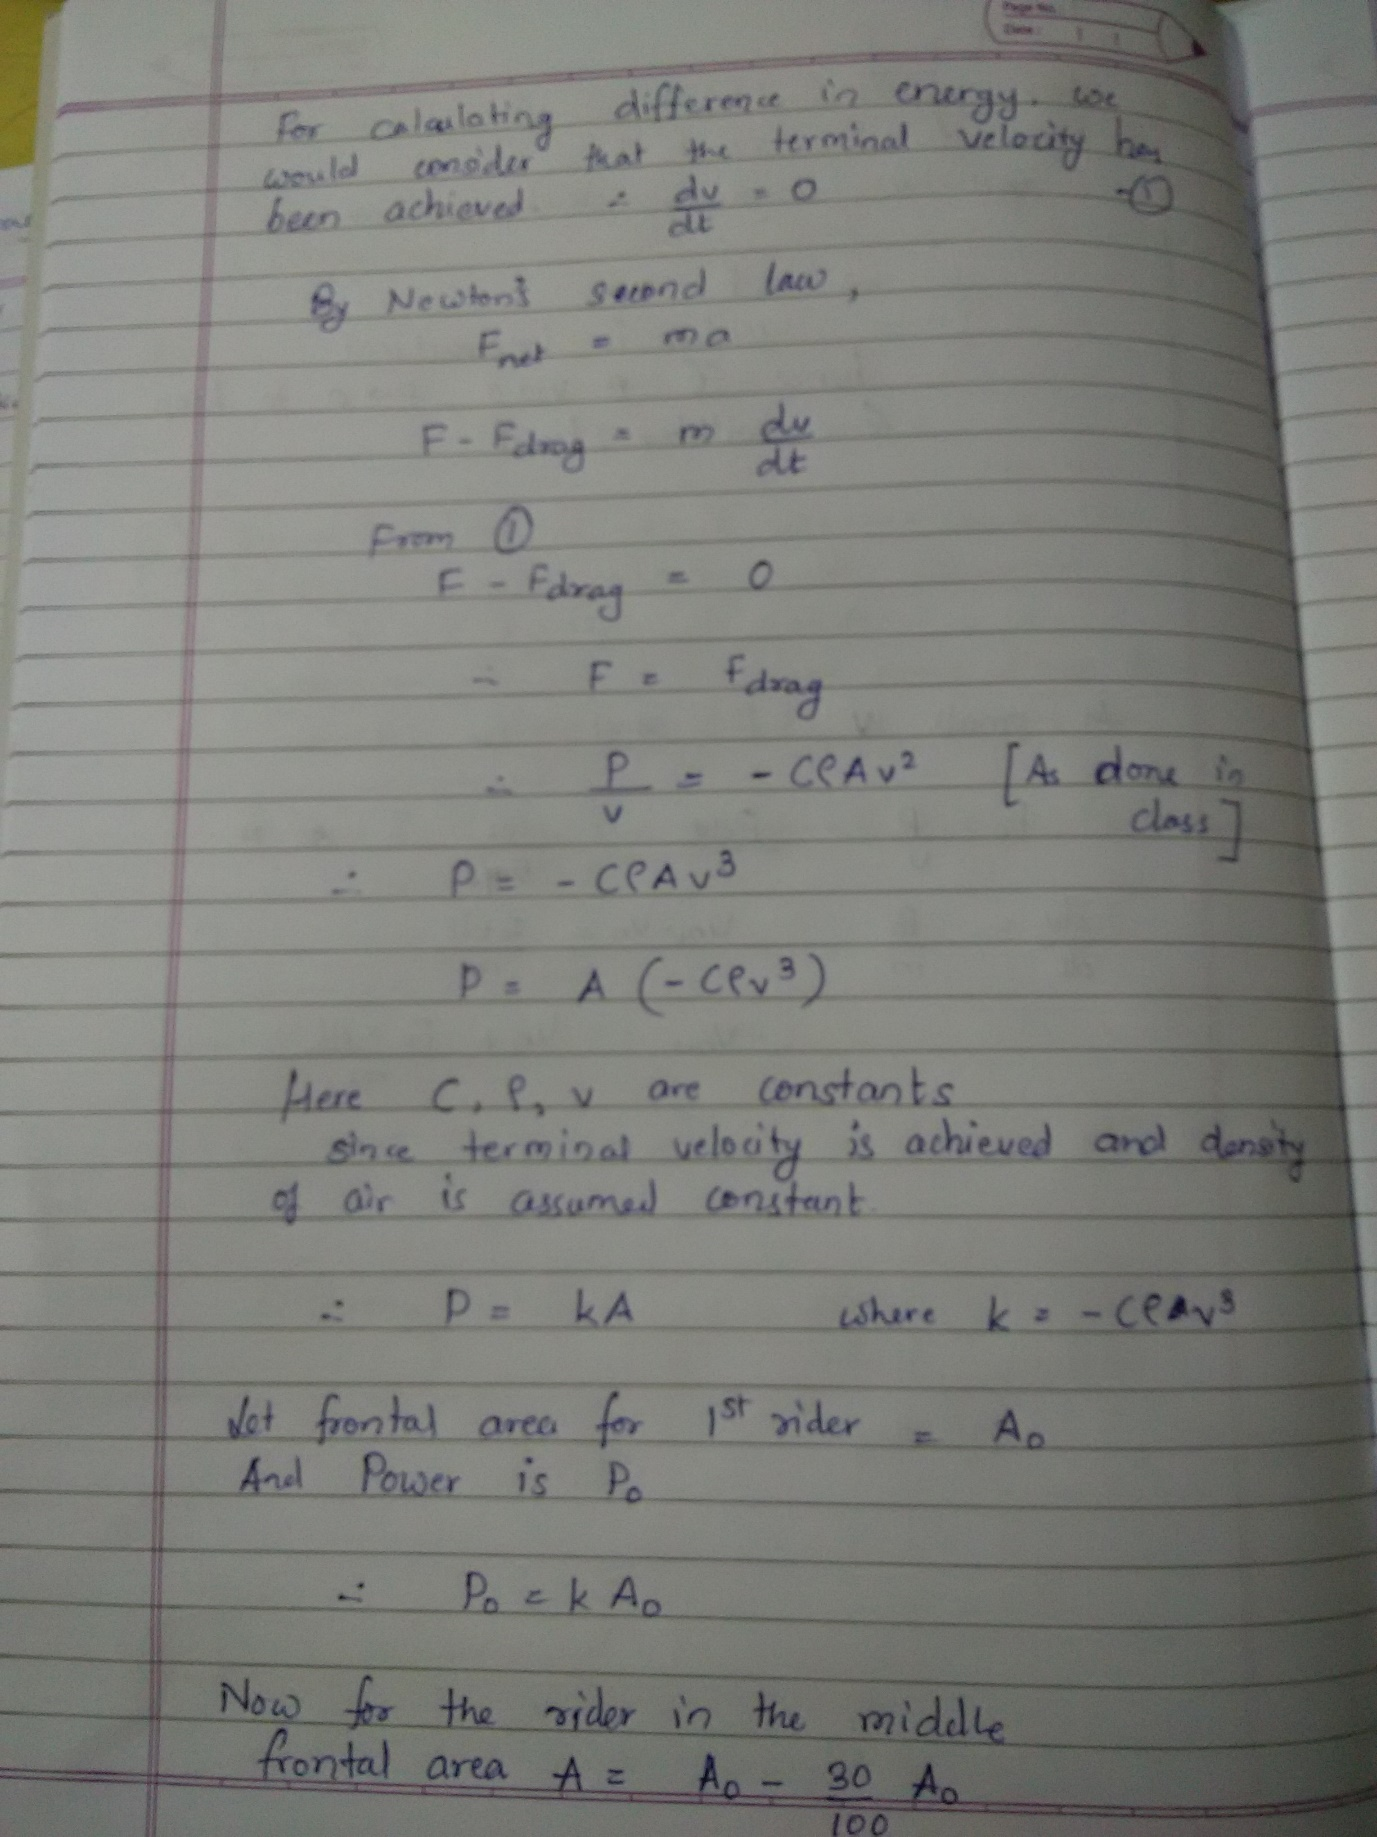 Page No.
Date:
For calculating difference in energy. we
would consider that the terminal velocity has
been achieved ∴ dv/dt = 0 -①
By Newton's second law,
Fnet = ma
F - Fdrag = m dv/dt
From ①
F - Fdrag = 0
∴ F = Fdrag
∴ P/v = - CρAv² [As done in
class]
∴ P = - CρAv³
P = A (-Cρv³)
Here C, ρ, v are constants
since terminal velocity is achieved and density
of air is assumed constant.
∴ P = kA where k = - CρAv³
Let frontal area for 1st rider = A₀
And Power is P₀
∴ P₀ = k A₀
Now for the rider in the middle
frontal area A = A₀ - 30/100 A₀